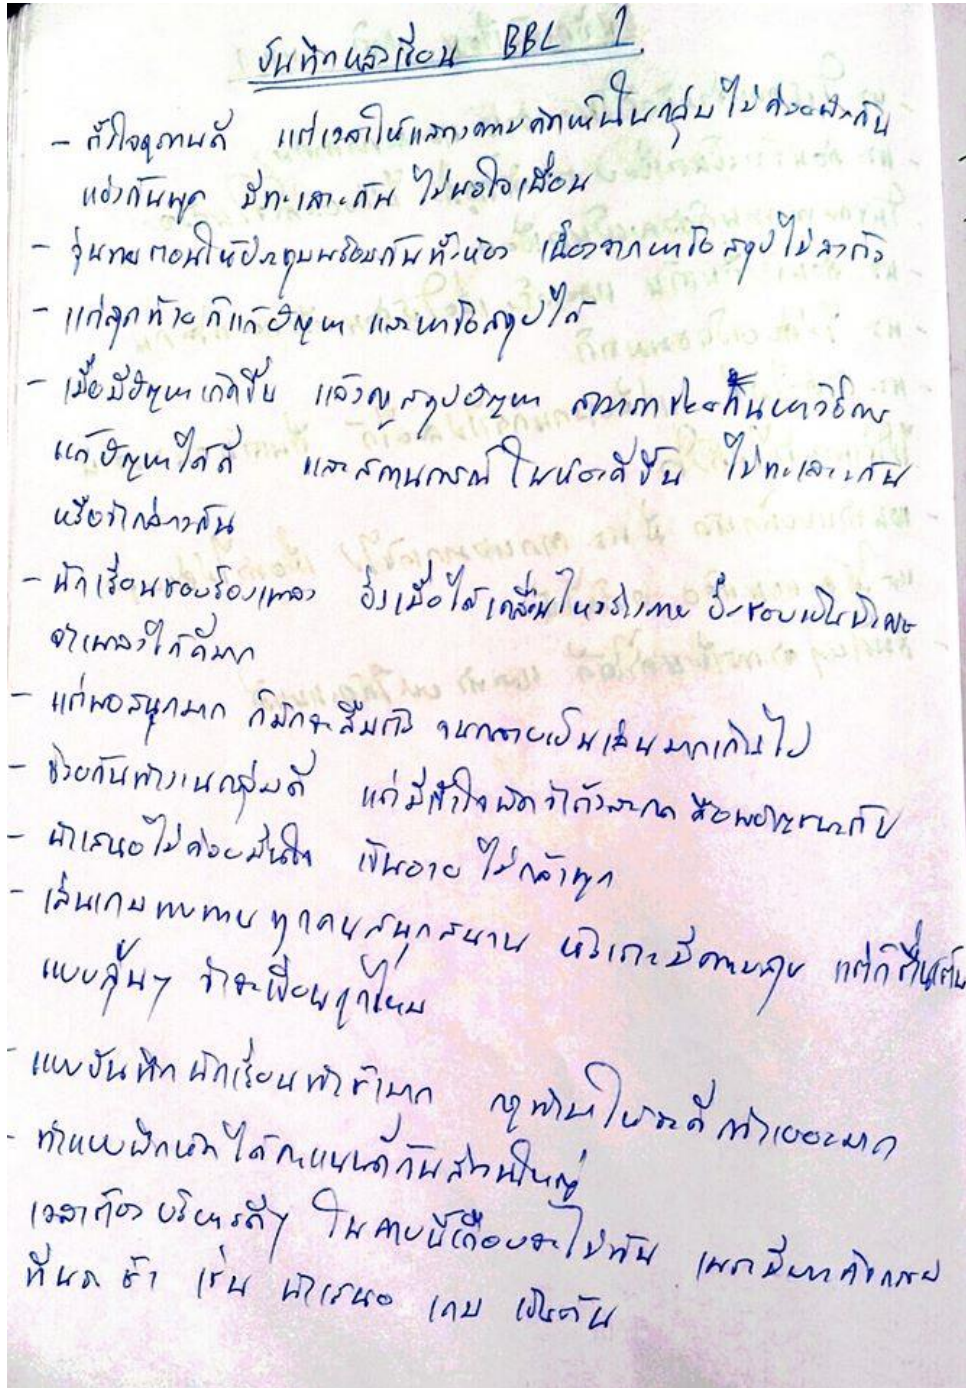 บันทึกหลังเรียน BBL 1
- ตั้งใจดูงานดี แต่เวลาให้แสดงความคิดเห็นในกลุ่ม ไม่ค่อยฟังกัน
แย่งกันพูด มีทะเลาะกัน ไม่พอใจเพื่อน
- วุ่นวายตอนให้ประชุมพร้อมกันทั้งห้อง เนื่องจากหาข้อสรุปไม่ลงตัว
- แต่สุดท้ายก็แก้ปัญหา และหาข้อสรุปได้
- เมื่อมีปัญหาเกิดขึ้น แล้วครูสรุปปัญหา สามารถช่วยกันหาวิธีการ
แก้ปัญหาได้ดี และสถานการณ์ในห้องดีขึ้น ไม่ทะเลาะกัน
หรือว่ากล่าวกัน
- นักเรียนชอบร้องเพลง ยิ่งเมื่อได้เคลื่อนไหวร่างกาย ยิ่งชอบเป็นพิเศษ
จำเพลงได้ดีมาก
- แต่พอสนุกมาก ก็มักจะลืมตัว จนกลายเป็นเล่นมากเกินไป
- ช่วยกันทำงานกลุ่มดี แต่มีเข้าใจผิดว่าตัวสะกด คือพยัญชนะต้น
- นำเสนอไม่ค่อยมั่นใจ เขินอาย ไม่กล้าพูด
- เล่นเกมทายคำ ทุกคนสนุกสนาน หัวเราะมีความสุข แต่ก็ตื่นเต้น
แบบลุ้นๆ ว่าจะเขียนถูกไหม
- แบบบันทึก นักเรียนทำช้ามาก
- ทำแบบฝึกหัดได้คะแนนดีกันส่วนใหญ่
เวลาต้องบริหารดีๆ ในคาบนี้เกือบจะไม่ทัน เพราะมีบางกิจกรรม
ที่นร. ช้า เช่น นำเสนอ เกม เป็นต้น